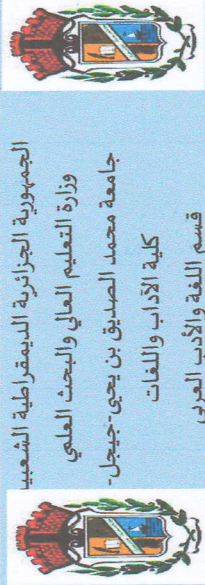 الجمهورية الجزائرية الديمقراطية الشعبي
وزارة التعليم العالي والبحث العلمي
جامعة محمد الصديق بن يحيى- جيجل-
كلية الآداب واللغات
قسم اللغة والأدب العربي